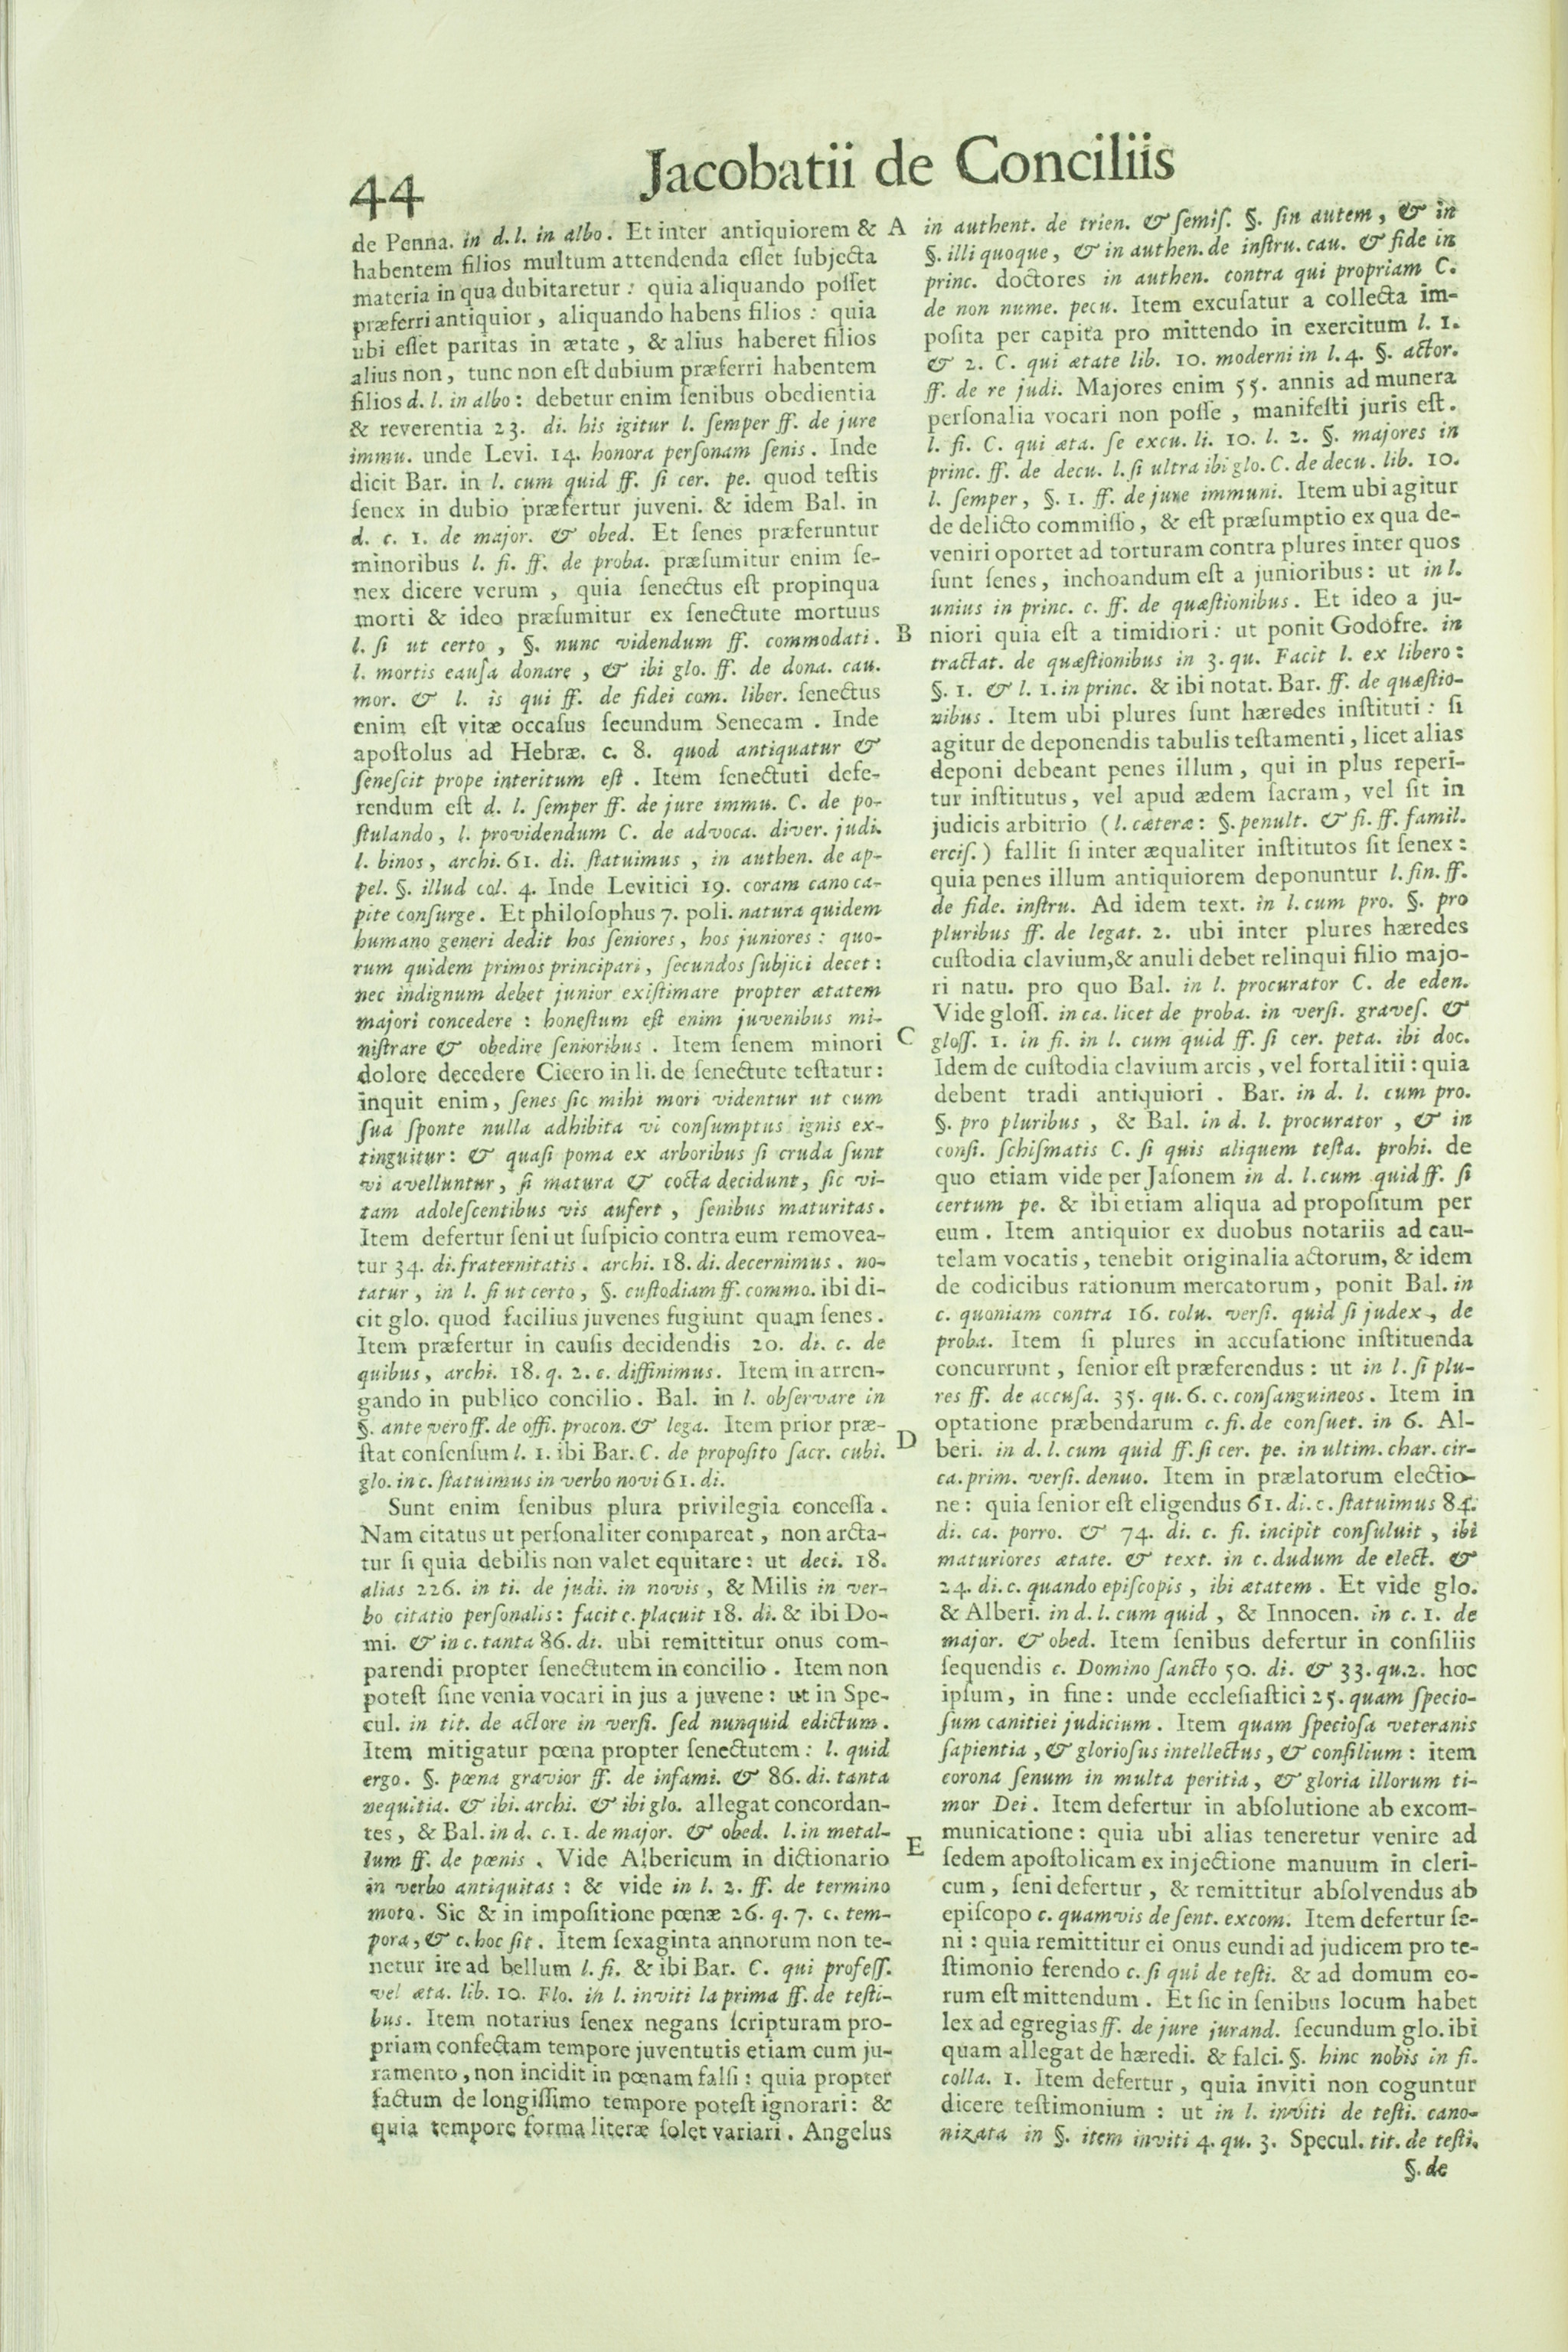 44
Jacobatii de Conciliis
de Penna. in d. l. in albo. Et inter antiquiorem &
habentem filios multum attendenda eſſet ſubjecta
materia in qua dubitaretur: quia aliquando poſſet
præferri antiquior, aliquando habens filios: quia
ubi eſſet paritas in ætate, & alius haberet filios
alius non, tunc non eſt dubium præferri habentem
filios d. l. in albo: debetur enim ſenibus obedientia
& reverentia 23. di. his igitur l. ſemper ff. de jure
immu. unde Levi. 14. honora perſonam ſenis. Inde
dicit Bar. in l. cum quid ff. ſi cer. pe. quod teſtis
ſenex in dubio præfertur juveni. & idem Bal. in
d. c. 1. de major. & obed. Et ſenes præferuntur
minoribus l. fi. ff. de proba. præſumitur enim ſe-
nex dicere verum, quia ſenectus eſt propinqua
morti & ideo præſumitur ex ſenectute mortuus
l. ſi ut certo, §. nunc videndum ff. commodati.
l. mortis eauſa donare, & ibi glo. ff. de dona. cau.
mor. & l. is qui ff. de fidei com. liber. ſenectus
enim eſt vitæ occaſus ſecundum Senecam. Inde
apoſtolus ad Hebræ. c. 8. quod antiquatur &
ſeneſcit prope interitum eſt. Item ſenectuti defe-
rendum eſt d. l. ſemper ff. de jure immu. C. de po-
ſtulando, l. providendum C. de advoca. diver. judi.
l. binos, archi. 61. di. ſtatuimus, in authen. de ap-
pel. §. illud col. 4. Inde Levitici 19. coram cano ca-
pite conſurge. Et philoſophus 7. poli. natura quidem
humano generi dedit hos ſeniores, hos juniores: quo-
rum quidem primos principari, ſecundos ſubjici decet:
nec indignum debet junior exiſtimare propter ætatem
majori concedere: honeſtum eſt enim juvenibus mi-
niſtrare & obedire ſenioribus. Item ſenem minori
dolore decedere Cicero in li. de ſenectute teſtatur:
inquit enim, ſenes ſic mihi mori videntur ut cum
ſua ſponte nulla adhibita vi conſumptus ignis ex-
tinguitur: & quaſi poma ex arboribus ſi cruda ſunt
vi avelluntur, ſi matura & cocta decidunt, ſic vi-
tam adoleſcentibus vis aufert, ſenibus maturitas.
Item defertur ſeni ut ſuſpicio contra eum removea-
tur 34. di. fraternitatis. archi. 18. di. decernimus. no-
tatur, in l. ſi ut certo, §. cuſtodiam ff. commo. ibi di-
cit glo. quod facilius juvenes fugiunt quam ſenes.
Item præfertur in cauſis decidendis 20. di. c. de
quibus, archi. 18. q. 2. c. diffinimus. Item in arren-
gando in publico concilio. Bal. in l. obſervare in
§. ante vero ff. de offi. procon. & lega. Item prior præ-
ſtat conſenſum l. 1. ibi Bar. C. de propoſito ſacr. cubi.
glo. in c. ſtatuimus in verbo novi 61. di.
Sunt enim ſenibus plura privilegia conceſſa.
Nam citatus ut perſonaliter compareat, non arcta-
tur ſi quia debilis non valet equitare: ut deci. 18.
alias 226. in ti. de judi. in novis, & Milis in ver-
bo citatio perſonalis: facit c. placuit 18. di. & ibi Do-
mi. & in c. tanta 86. di. ubi remittitur onus com-
parendi propter ſenectutem in concilio. Item non
poteſt ſine venia vocari in jus a juvene: ut in Spe-
cul. in tit. de actore in verſi. ſed nunquid edictum.
Item mitigatur pœna propter ſenectutem: l. quid
ergo. §. pœna gravior ff. de infami. & 86. di. tanta
nequitia. & ibi. archi. & ibi glo. allegat concordan-
tes, & Bal. in d. c. 1. de major. & obed. l. in metal-
lum ff. de pœnis. Vide Albericum in dictionario
in verbo antiquitas: & vide in l. 2. ff. de termino
moto. Sic & in impoſitione pœnæ 26. q. 7. c. tem-
pora, & c. hoc ſit. Item ſexaginta annorum non te-
netur ire ad bellum l. fi. & ibi Bar. C. qui profeſſ.
vel æta. lib. 10. Flo. in l. inviti la prima ff. de teſti-
bus. Item notarius ſenex negans ſcripturam pro-
priam confectam tempore juventutis etiam cum ju-
ramento, non incidit in pœnam falſi: quia propter
factum de longiſſimo tempore poteſt ignorari: &
quia tempore forma literæ ſolet variari. Angelus
A
B
C
D
E
in authent. de trien. & ſemiſ. §. ſin autem, & in
§. illi quoque, & in authen. de inſtru. cau. & fide in
princ. doctores in authen. contra qui propriam C.
de non nume. pecu. Item excuſatur a collecta im-
poſita per capita pro mittendo in exercitum l. 1.
& 2. C. qui ætate lib. 10. moderni in l. 4. §. actor.
ff. de re judi. Majores enim 55. annis ad munera
perſonalia vocari non poſſe, manifeſti juris eſt.
l. fi. C. qui æta. ſe excu. li. 10. l. 2. §. majores in
princ. ff. de decu. l. ſi ultra ibi glo. C. de decu. lib. 10.
l. ſemper, §. 1. ff. de jure immuni. Item ubi agitur
de delicto commiſſo, & eſt præſumptio ex qua de-
veniri oportet ad torturam contra plures inter quos
ſunt ſenes, inchoandum eſt a junioribus: ut in l.
unius in princ. c. ff. de quæſtionibus. Et ideo a ju-
niori quia eſt a timidiori: ut ponit Godofre. in
tractat. de quæſtionibus in 3. qu. Facit l. ex libero:
§. 1. & l. 1. in princ. & ibi notat. Bar. ff. de quæſtio-
nibus. Item ubi plures ſunt hæredes inſtituti: ſi
agitur de deponendis tabulis teſtamenti, licet alias
deponi debeant penes illum, qui in plus reperi-
tur inſtitutus, vel apud ædem ſacram, vel ſit in
judicis arbitrio (l. cæteræ: §. penult. & fi. ff. famil.
erciſ.) fallit ſi inter æqualiter inſtitutos ſit ſenex:
quia penes illum antiquiorem deponuntur l. fin. ff.
de fide. inſtru. Ad idem text. in l. cum pro. §. pro
pluribus ff. de legat. 2. ubi inter plures hæredes
cuſtodia clavium, & anuli debet relinqui filio majo-
ri natu. pro quo Bal. in l. procurator C. de eden.
Vide gloſſ. in ca. licet de proba. in verſi. graveſ. &
gloſſ. 1. in fi. in l. cum quid ff. ſi cer. peta. ibi doc.
Idem de cuſtodia clavium arcis, vel fortalitii: quia
debent tradi antiquiori. Bar. in d. l. cum pro.
§. pro pluribus, & Bal. in d. l. procurator, & in
conſi. ſchiſmatis C. ſi quis aliquem teſta. prohi. de
quo etiam vide per Jaſonem in d. l. cum quid ff. ſi
certum pe. & ibi etiam aliqua ad propoſitum per
eum. Item antiquior ex duobus notariis ad cau-
telam vocatis, tenebit originalia actorum, & idem
de codicibus rationum mercatorum, ponit Bal. in
c. quoniam contra 16. colu. verſi. quid ſi judex, de
proba. Item ſi plures in accuſatione inſtituenda
concurrunt, ſenior eſt præferendus: ut in l. ſi plu-
res ff. de accuſa. 35. qu. 6. c. conſanguineos. Item in
optatione præbendarum c. fi. de conſuet. in 6. Al-
beri. in d. l. cum quid ff. ſi cer. pe. in ultim. char. cir-
ca. prim. verſi. denuo. Item in prælatorum electio-
ne: quia ſenior eſt eligendus 61. di. c. ſtatuimus 84.
di. ca. porro. & 74. di. c. fi. incipit conſuluit, ibi
maturiores ætate. & text. in c. dudum de elect. &
24. di. c. quando epiſcopis, ibi ætatem. Et vide glo.
& Alberi. in d. l. cum quid, & Innocen. in c. 1. de
major. & obed. Item ſenibus defertur in conſiliis
ſequendis c. Domino ſancto 50. di. & 33. qu. 2. hoc
ipſum, in fine: unde eccleſiaſtici 25. quam ſpecio-
ſum canitiei judicium. Item quam ſpecioſa veteranis
ſapientia, & glorioſus intellectus, & conſilium: item
corona ſenum in multa peritia, & gloria illorum ti-
mor Dei. Item defertur in abſolutione ab excom-
municatione: quia ubi alias teneretur venire ad
ſedem apoſtolicam ex injectione manuum in cleri-
cum, ſeni defertur, & remittitur abſolvendus ab
epiſcopo c. quamvis de ſent. excom. Item defertur ſe-
ni: quia remittitur ei onus eundi ad judicem pro te-
ſtimonio ferendo c. ſi qui de teſti. & ad domum eo-
rum eſt mittendum. Et ſic in ſenibus locum habet
lex ad egregias ff. de jure jurand. ſecundum glo. ibi
quam allegat de hæredi. & falci. §. hinc nobis in fi.
colla. 1. Item defertur, quia inviti non coguntur
dicere teſtimonium: ut in l. inviti de teſti. cano-
nizata in §. item inviti 4. qu. 3. Specul. tit. de teſti.
§. de